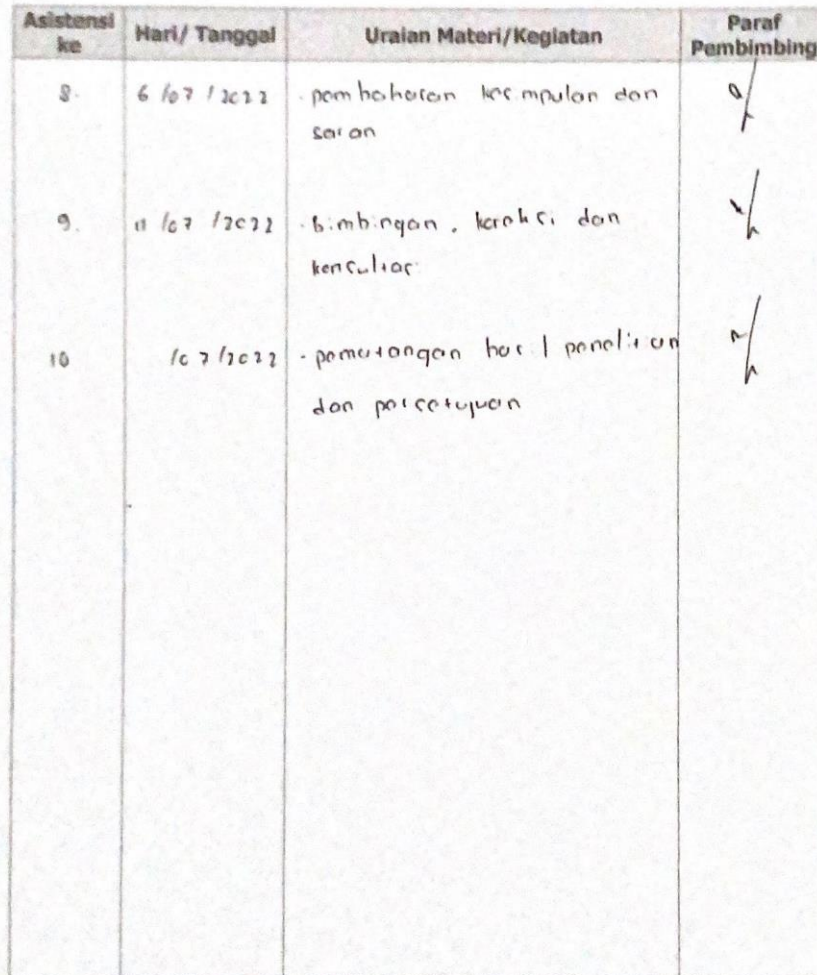 Asistensi ke Hari/ Tanggal Uraian Materi/Kegiatan Paraf Pembimbing
8. 6 /07 / 2022 · pembahasan kesimpulan dan
saran
9. 11 /07 /2022 · bimbingan, koreksi dan
konsultasi
10 /07/2022 · pematangan hasil penelitian
dan persetujuan